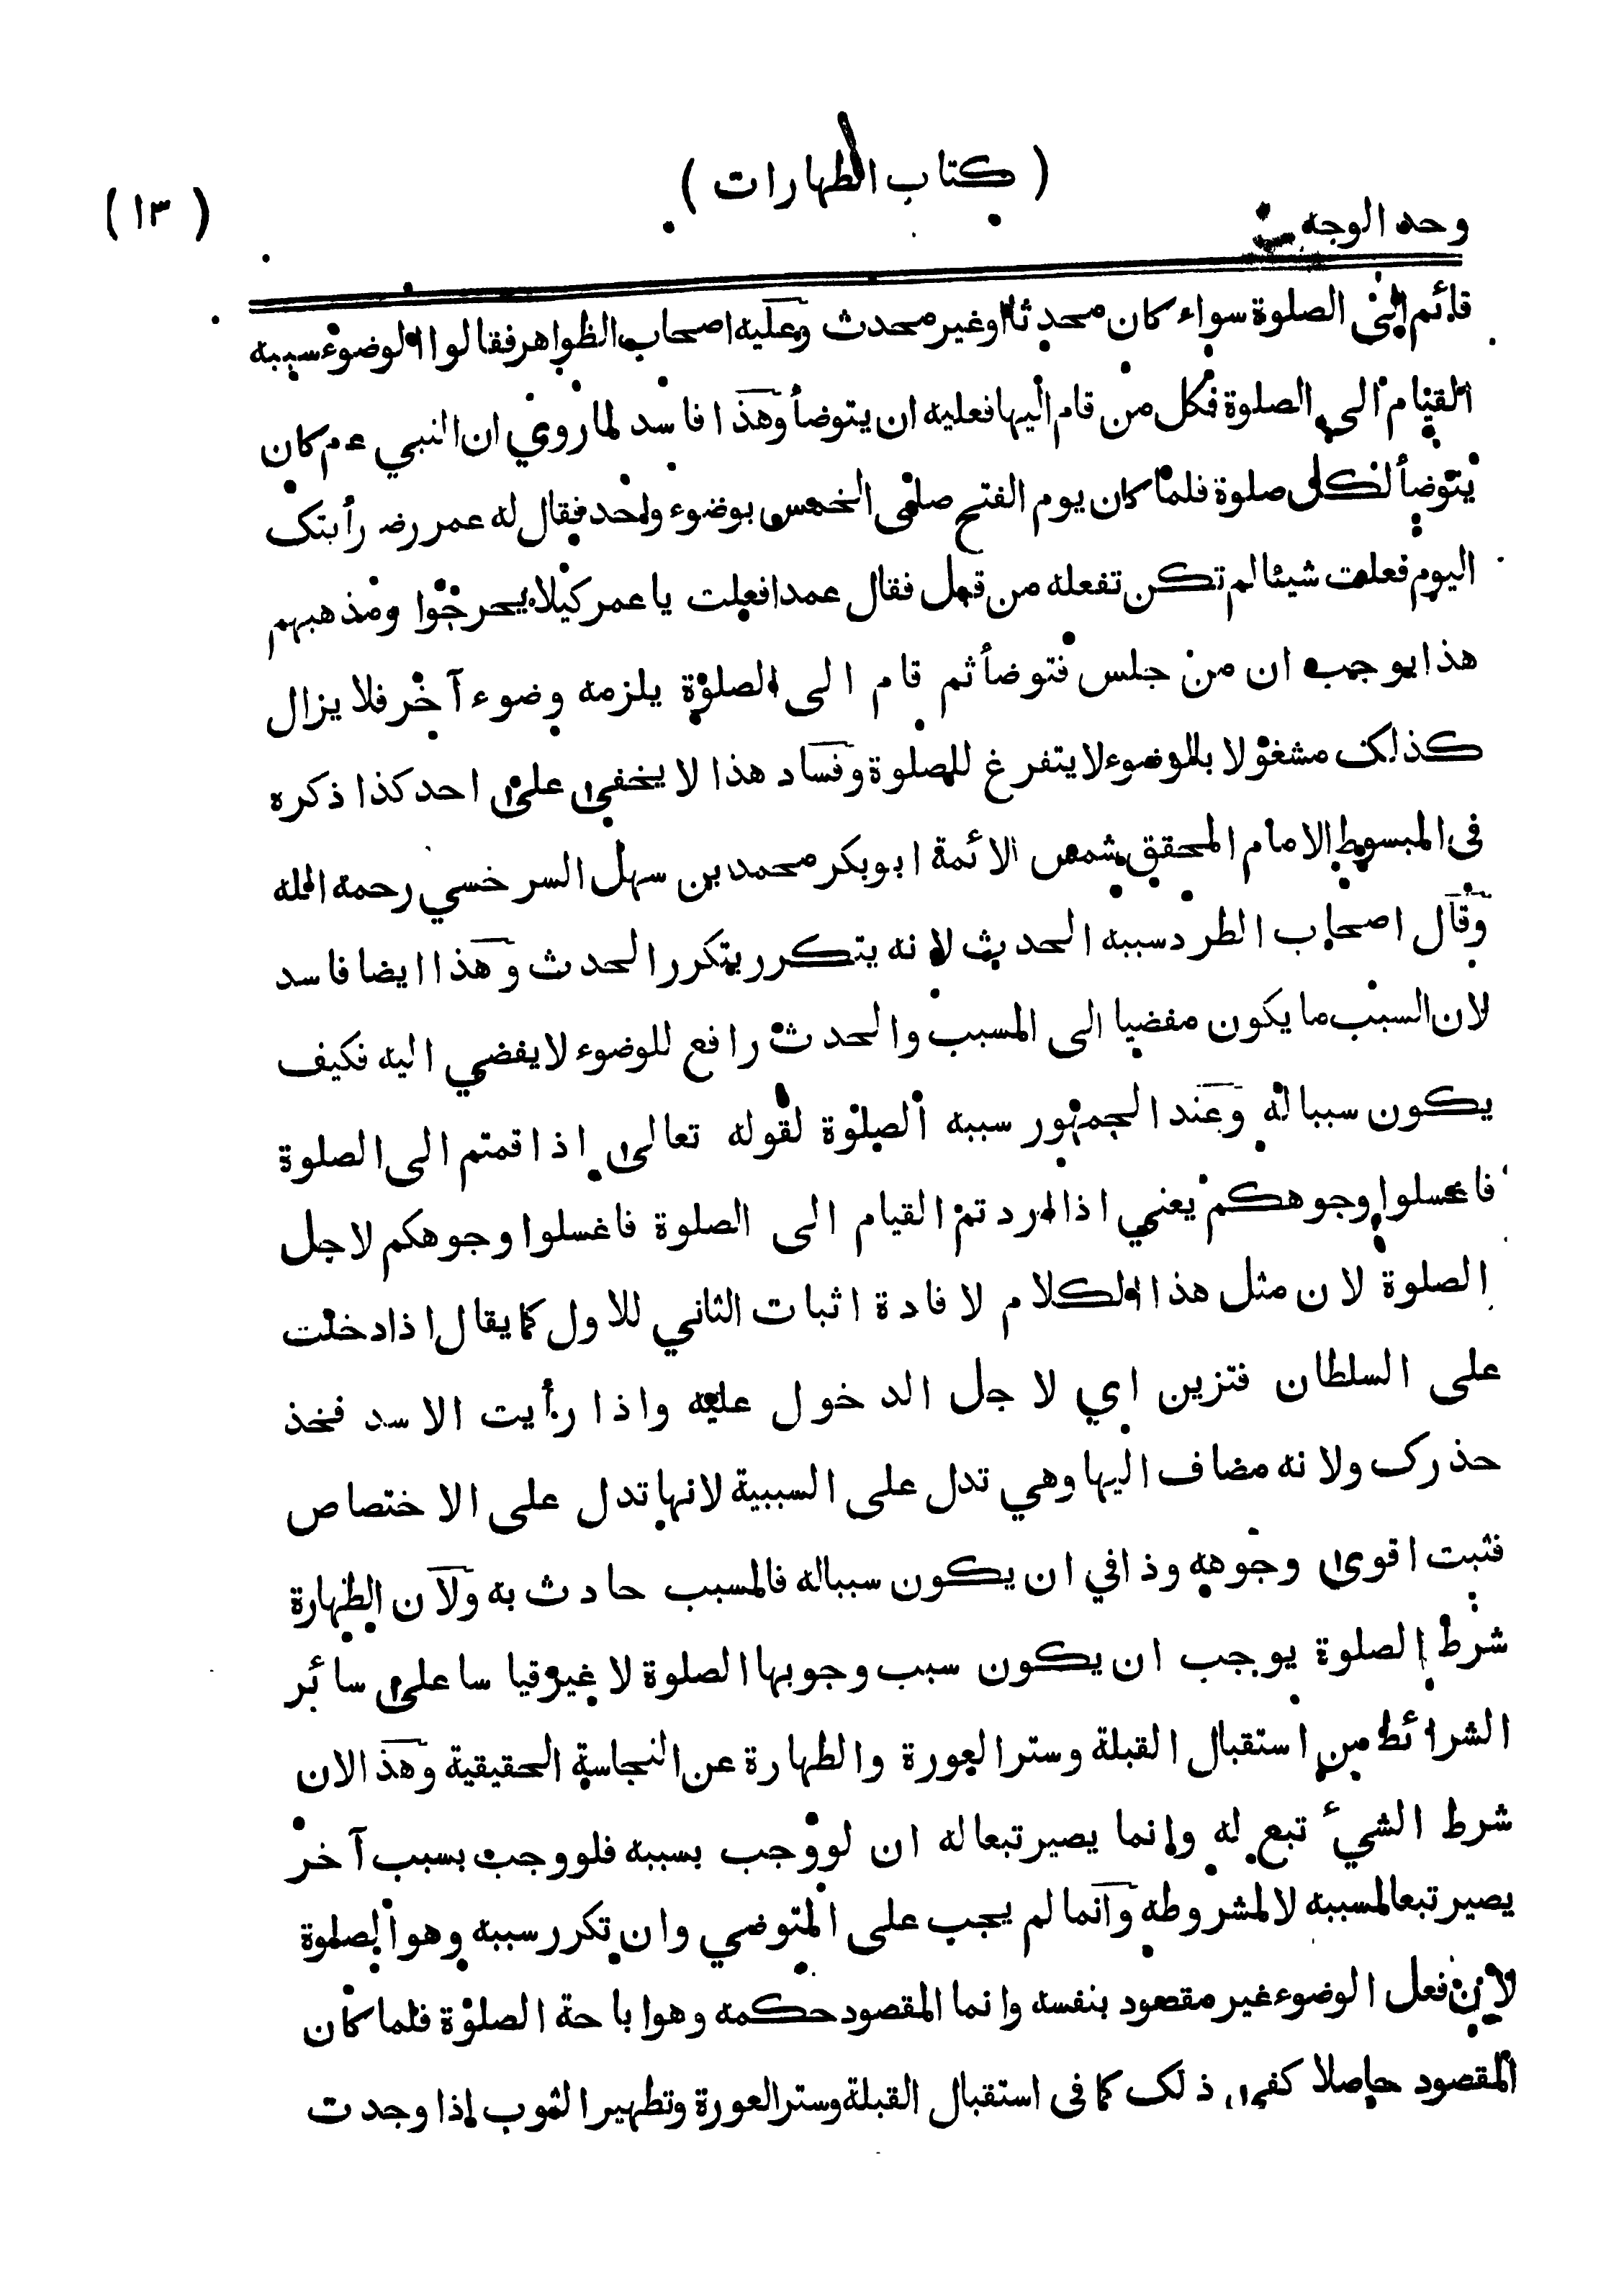 ( كتاب الطهارات )
( ١٣ )
وحد الوجه
قائم الى الصلوة سواء كان محدثا اوغير محدث وعليه اصحاب الظواهر فقالوا الوضوء سببه
القيام الى الصلوة فكل من قام اليها فعليه ان يتوضأ وهذا فاسد لما روي ان النبي ءم كان
يتوضأ لكل صلوة فلما كان يوم الفتح صلى الخمس بوضوء واحد فقال له عمر رضـ رأيتك
اليوم فعلت شيئا لم تكن تفعله من قبل فقال عمدا فعلت يا عمر كيلا يحرجوا ومذهبهم
هذا يوجب ان من جلس فتوضأ ثم قام الى الصلوة يلزمه وضوء آخر فلا يزال
كذلك مشغولا بالوضوء لا يتفرغ للصلوة وفساد هذا لا يخفى على احد كذا ذكره
فى المبسوط الامام المحقق شمس الائمة ابوبكر محمد بن سهل السرخسي رحمه الله
وقال اصحاب الطرد سببه الحدث لانه يتكرر بتكرر الحدث وهذا ايضا فاسد
لان السبب ما يكون مفضيا الى المسبب والحدث رافع للوضوء لا يفضي اليه فكيف
يكون سببا له وعند الجمهور سببه الصلوة لقوله تعالى اذا قمتم الى الصلوة
فاغسلوا وجوهكم يعني اذا اردتم القيام الى الصلوة فاغسلوا وجوهكم لاجل
الصلوة لان مثل هذا الكلام لافادة اثبات الثاني للاول كما يقال اذا دخلت
على السلطان فتزين اي لاجل الدخول عليه واذا رأيت الاسد فخذ
حذرك ولانه مضاف اليها وهي تدل على السببية لانها تدل على الاختصاص
فثبت اقوى وجوهه وذا في ان يكون سبباله فالمسبب حادث به ولان الطهارة
شرط الصلوة يوجب ان يكون سبب وجوبها الصلوة لا غير قياسا على سائر
الشرائط من استقبال القبلة وستر العورة والطهارة عن النجاسة الحقيقية وهذا لان
شرط الشيء تبع له وانما يصير تبعا له ان لو وجب بسببه فلو وجب بسبب آخر
يصير تبعا لمسببه لا لمشروطه وانما لم يجب على المتوضي وان تكرر سببه وهو الصلوة
لان فعل الوضوء غير مقصود بنفسه وانما المقصود حكمه وهو اباحة الصلوة فلما كان
المقصود حاصلا كفى ذلك كما فى استقبال القبلة وستر العورة وتطهير الثوب اذا وجدت